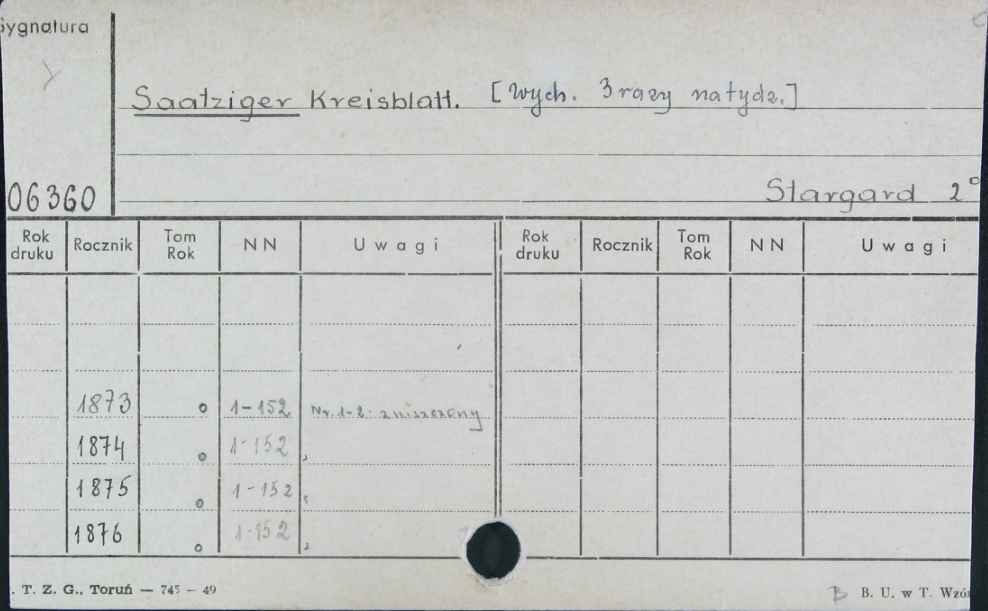 Sygnatura
Saatziger Kreisblatt. [Wych. 3 razy na tydz.]
06360
Stargard 2°
Rok druku Rocznik Tom Rok NN Uwagi Rok druku Rocznik Tom Rok NN Uwagi
1873 o 1-152 Nr. 1-2. zniszczony
1874 o 1-152 „
1875 o 1-152 „
1876 o 1-152 „
. T. Z. G., Toruń — 745 — 49
B. U. w T. Wzó